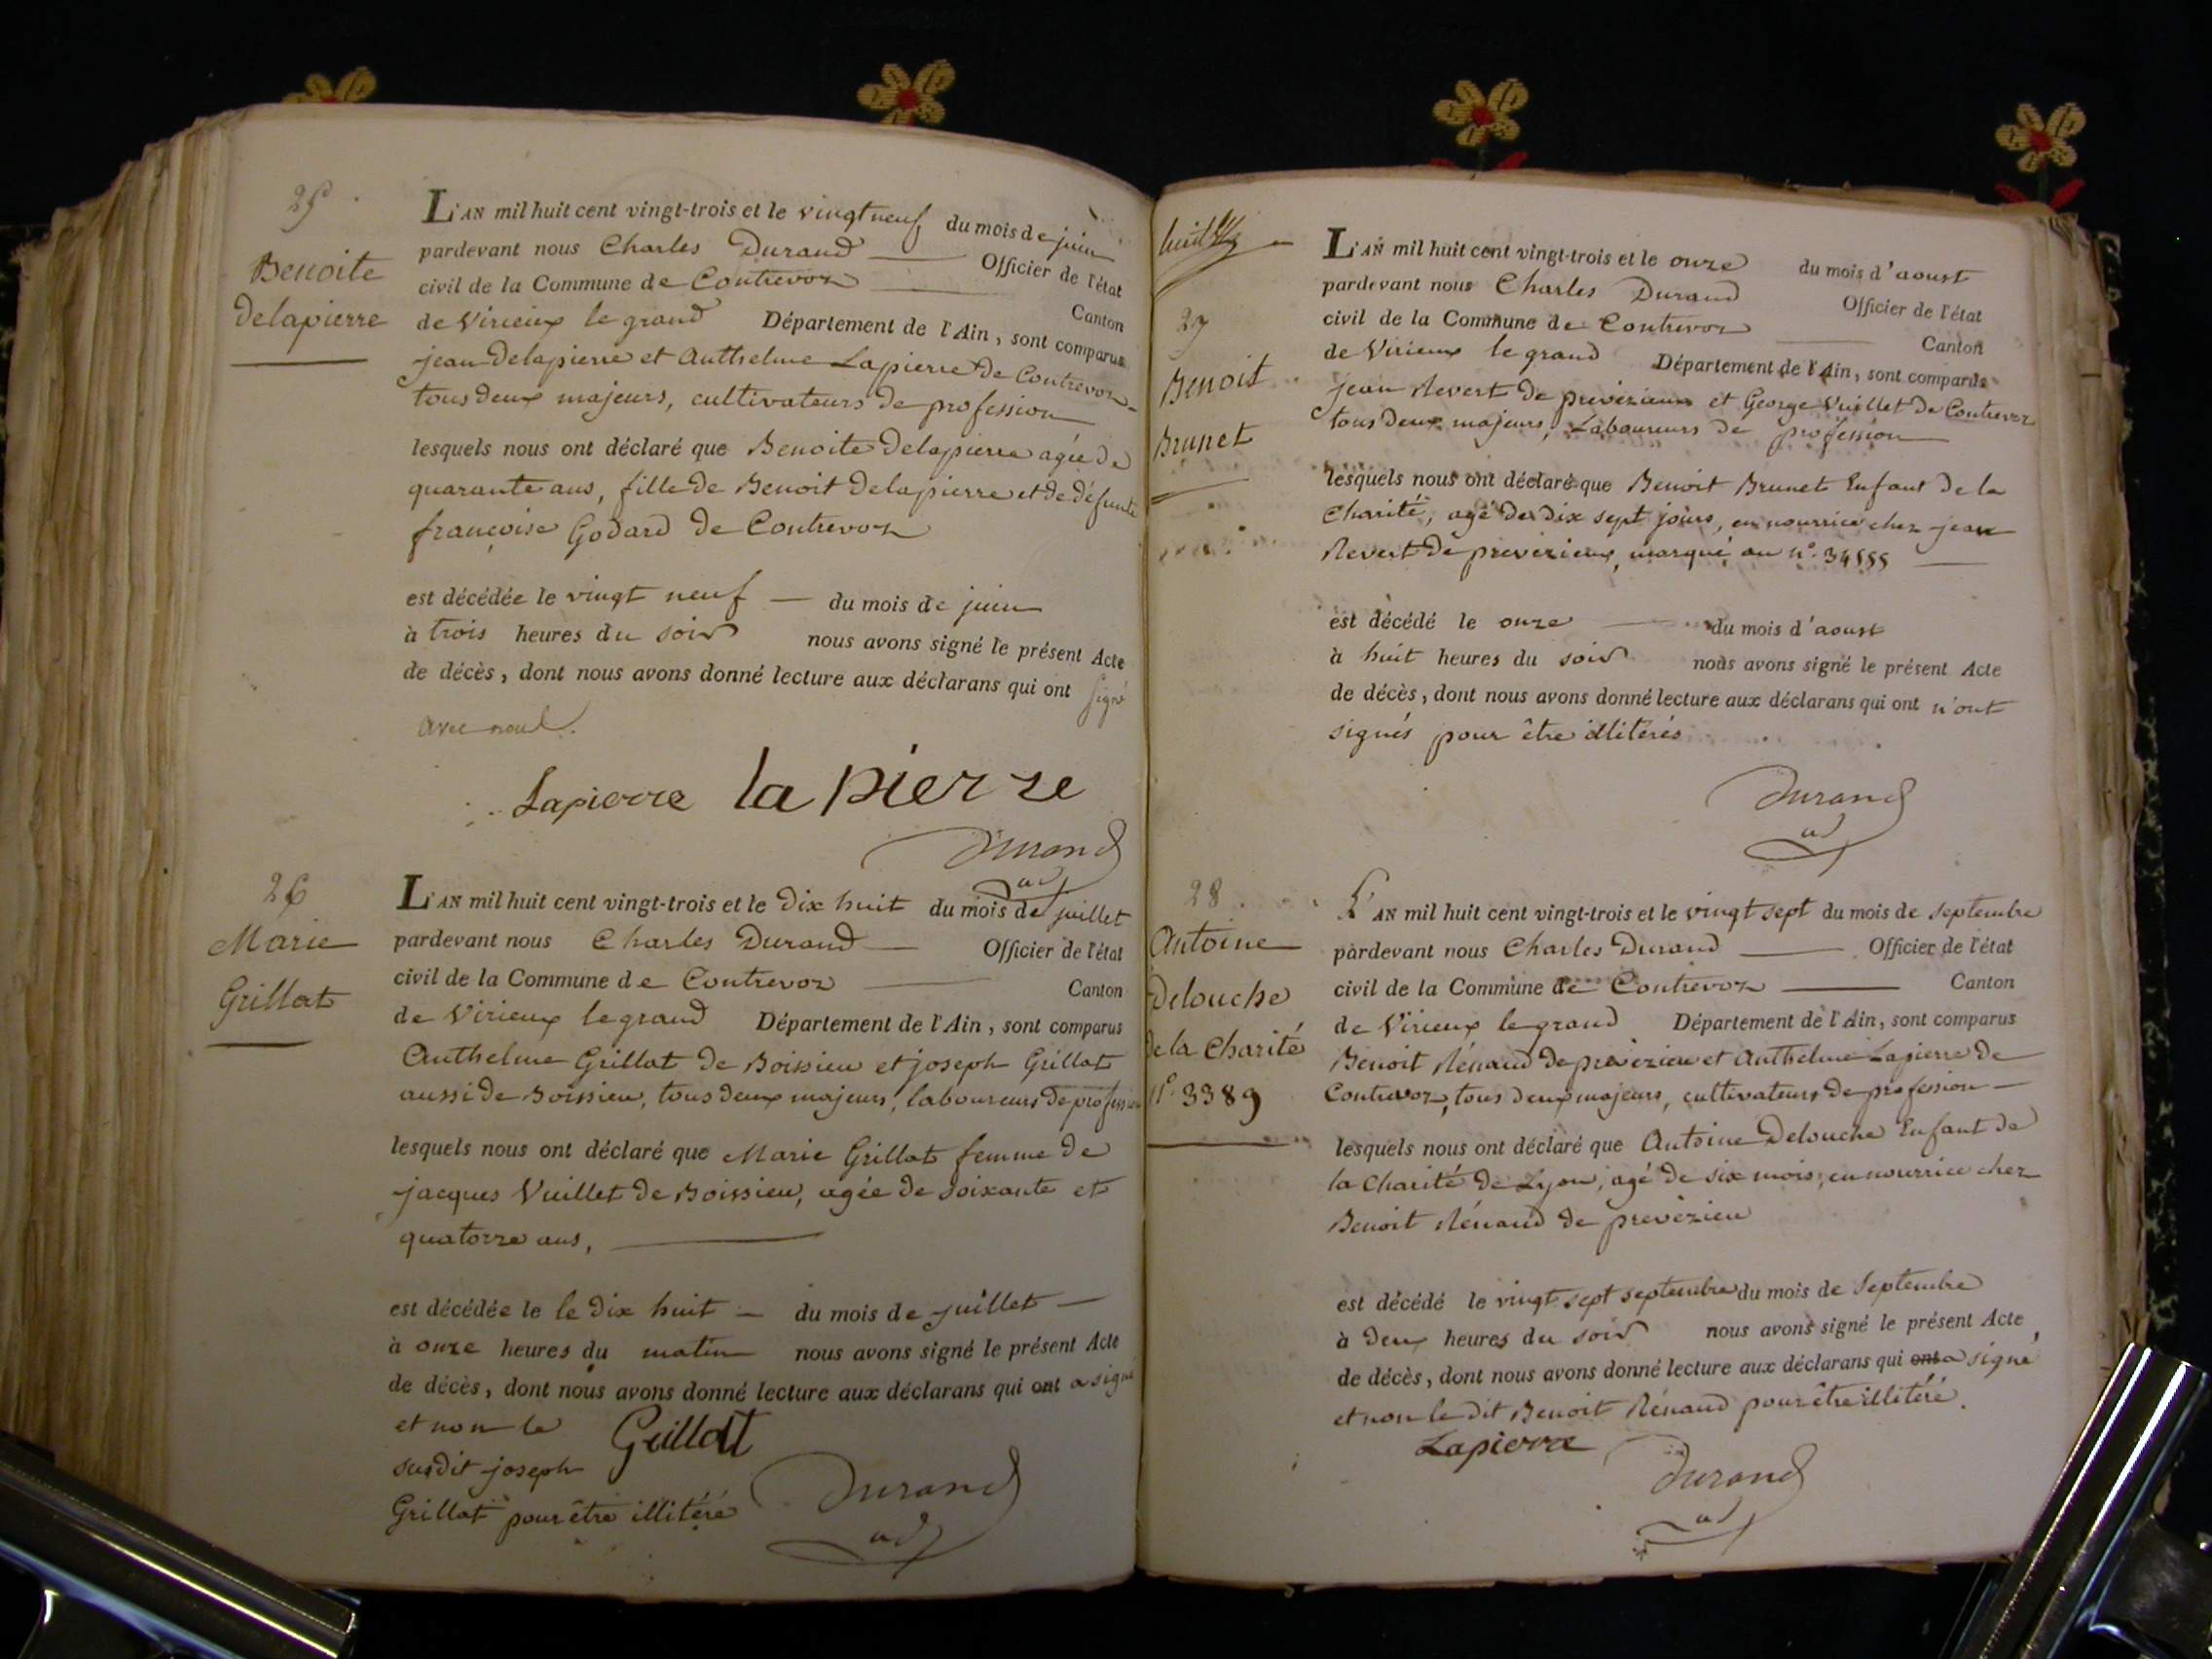 25
Benoite
Delapierre
L'AN mil huit cent vingt-trois et le vingt neuf du mois de juin
pardevant nous Charles Durand Officier de l'état
civil de la Commune de Contrevoz Canton
de Virieux le grand Département de l'Ain, sont comparus
jean Delapierre et Anthelme Lapierre de Contrevoz
tous deux majeurs, cultivateurs de profession
lesquels nous ont déclaré que Benoite Delapierre agée de
quarante ans, fille de Benoit Delapierre et de défunte
françoise Godard de Contrevoz
est décédée le vingt neuf du mois de juin
à trois heures du soir nous avons signé le présent Acte
de décès, dont nous avons donné lecture aux déclarans qui ont signé
avec nous.
Lapierre la pierre
Durand
26
Marie
Grillat
L'AN mil huit cent vingt-trois et le dix huit du mois de juillet
pardevant nous Charles Durand Officier de l'état
civil de la Commune de Contrevoz Canton
de Virieux le grand Département de l'Ain, sont comparus
Anthelme Grillat de Boissieu et joseph Grillat
aussi de Boissieu, tous deux majeurs, laboureurs de profession
lesquels nous ont déclaré que Marie Grillat femme de
jacques Vuillet de Boissieu, agée de soixante et
quatorze ans,
est décédée le le dix huit du mois de juillet
à onze heures du matin nous avons signé le présent Acte
de décès, dont nous avons donné lecture aux déclarans qui ont a signé
et non le
susdit joseph
Grillat pour être illitéré
Grillat
Durand
27
Benoit
Brunet
L'AN mil huit cent vingt-trois et le onze du mois d'aoust
pardevant nous Charles Durand Officier de l'état
civil de la Commune de Contrevoz Canton
de Virieux le grand Département de l'Ain, sont comparus
jean Revert de prevezieux et George Vuillet de Contrevoz
tous deux majeurs, Laboureurs de profession
lesquels nous ont déclaré que Benoit Brunet Enfant de la
Charité, agé de dix sept jours, en nourrice chez jean
Revert de prevezieux, marqué au n°. 34555
est décédé le onze du mois d'aoust
à huit heures du soir nous avons signé le présent Acte
de décès, dont nous avons donné lecture aux déclarans qui ont n'ont
signés pour être illitérés
Durand
28
Antoine
Delouche
de la Charité
n°. 3389
L'AN mil huit cent vingt-trois et le vingt sept du mois de septembre
pardevant nous Charles Durand Officier de l'état
civil de la Commune de Contrevoz Canton
de Virieux le grand Département de l'Ain, sont comparus
Benoit Rénaud de prevezieu et Anthelme Lapierre de
Contrevoz, tous deux majeurs, cultivateurs de profession
lesquels nous ont déclaré que Antoine Delouche Enfant de
la Charité de Lyon, agé de six mois, en nourrice chez
Benoit Rénaud de prevezieu
est décédé le vingt sept septembre du mois de Septembre
à deux heures du soir nous avons signé le présent Acte
de décès, dont nous avons donné lecture aux déclarans qui ont a signé
et non le dit Benoit Rénaud pour être illitéré.
Lapierre
Durand